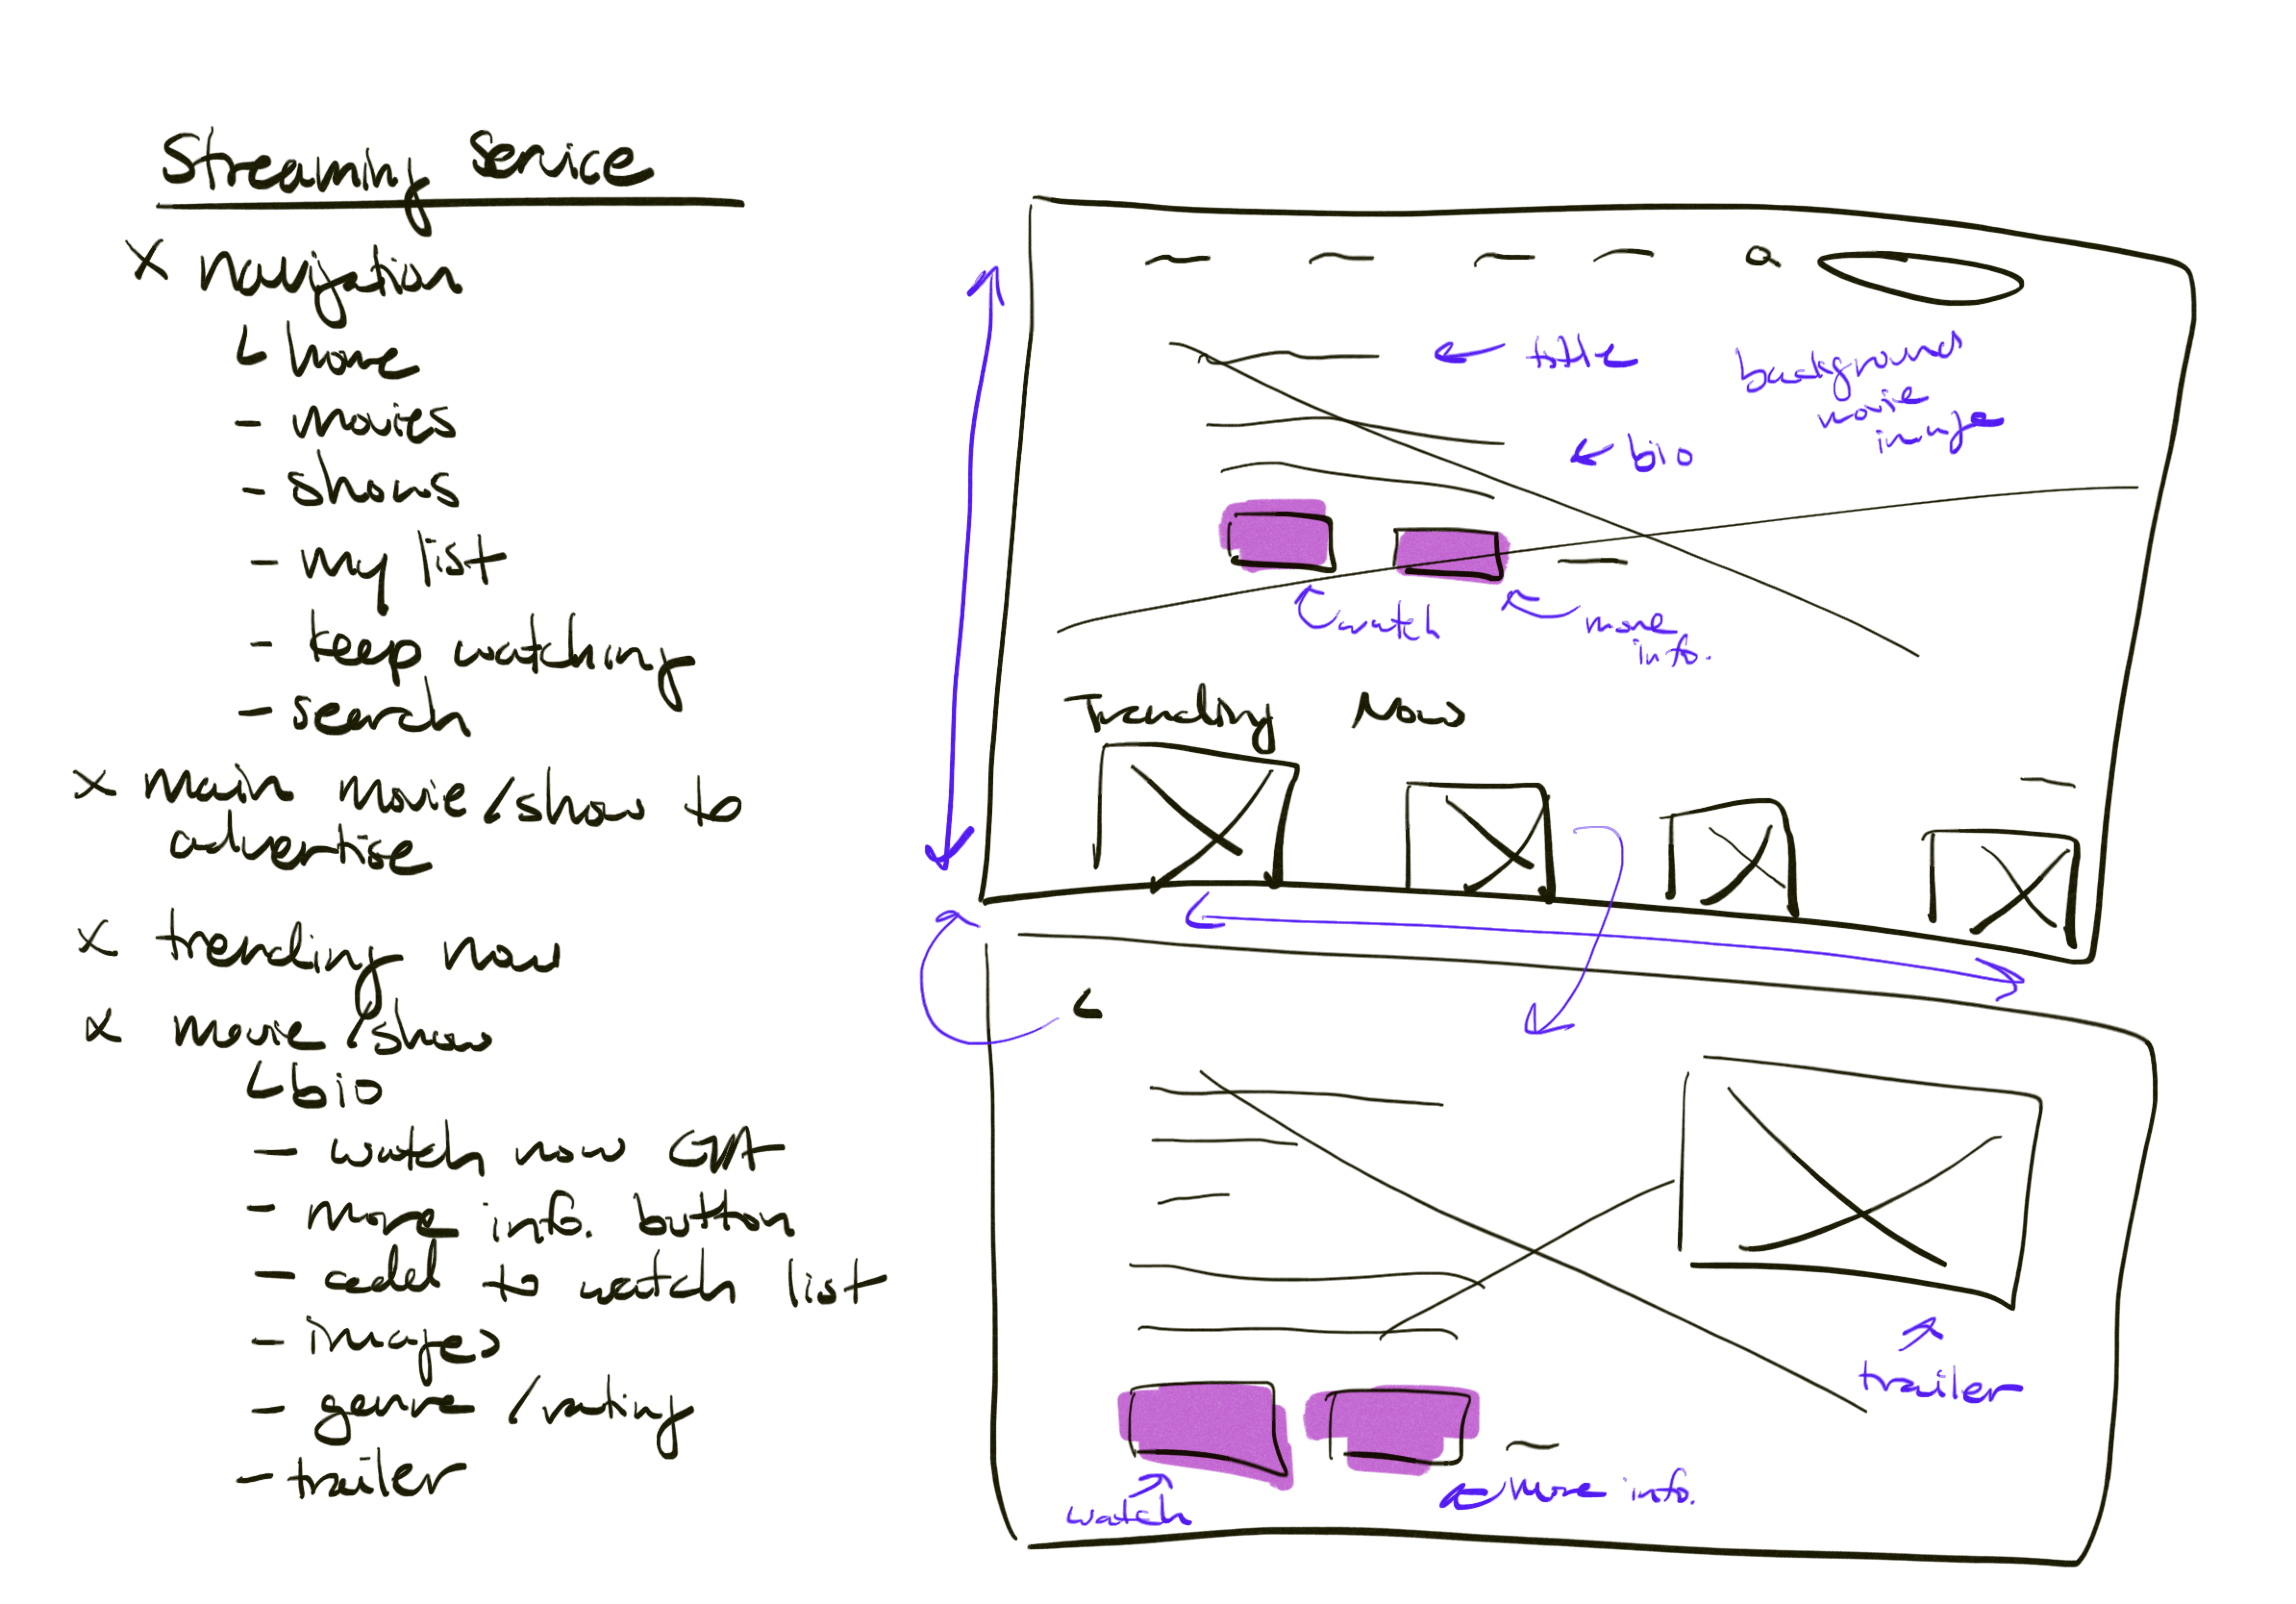 Streaming Service
x navigation
home
- movies
- shows
- my list
- keep watching
- search
x main movie/show to
advertise
x trending now
x movie/show
bio
- watch now CTA
- more info. button
- add to watch list
- images
- genre/rating
- trailer
title
background
movie
image
bio
watch
more
info.
Trending Now
trailer
watch
more info.